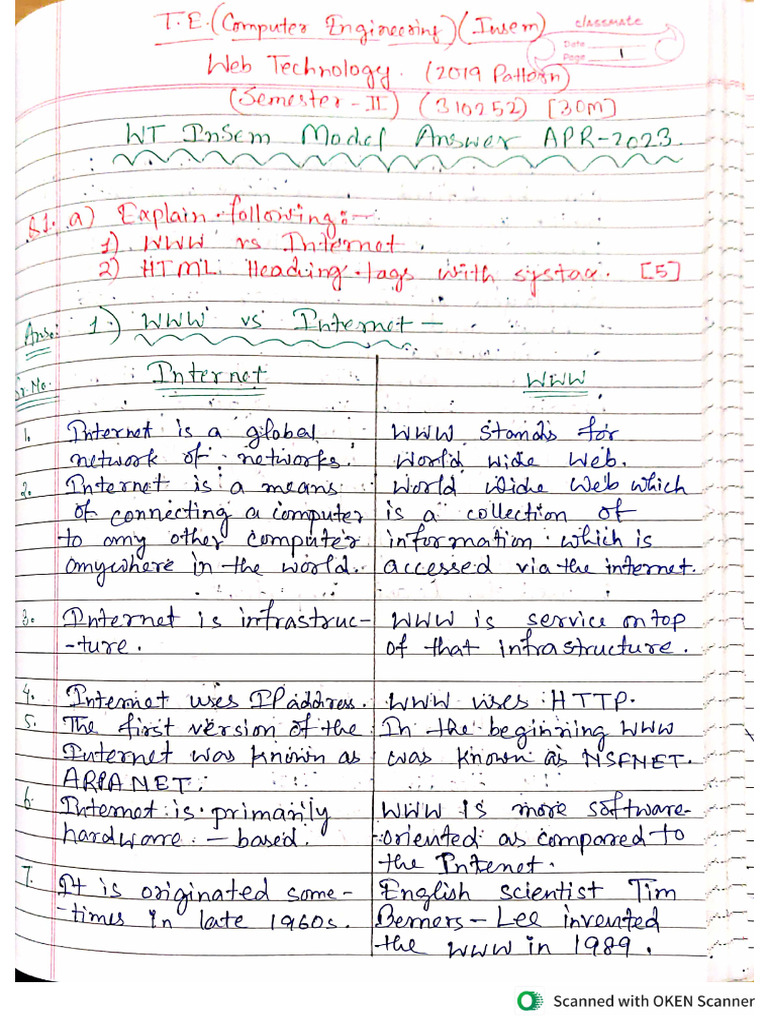 T.E.(Computer Engineering)(Insem)
classmate
Date
Page 1
Web Technology. (2019 Pattern)
(Semester-II) (310252) [30M]
WT InSem Model Answer APR-2023.
Q1. a) Explain following:-
1) WWW vs Internet.
2) HTML Heading tags with systax. [5]
Ans: 1.) WWW vs Internet —
Sr.No. Internet WWW
1. Internet is a global WWW stands for
network of networks. World wide Web.
2. Internet is a means World Wide Web which
of connecting a computer is a collection of
to any other computer information which is
anywhere in the world. accessed via the internet.
3. Internet is infrastruc- WWW is service on top
-ture. of that infrastructure.
4. Internet uses IP address. WWW uses HTTP.
5. The first version of the In the beginning WWW
Internet was known as was known as NSFNET.
ARPANET.
6. Internet is primarily WWW is more software-
hardware - based. -oriented as compared to
the Internet.
7. It is originated some- English scientist Tim
-times in late 1960s. Berners-Lee invented
the WWW in 1989.
Scanned with OKEN Scanner